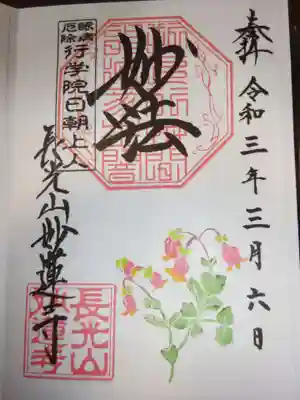 奉拝
令和三年三月六日
妙法
眼病
厄除
行学院日朝上人
長光山妙蓮寺
長光山
妙蓮寺